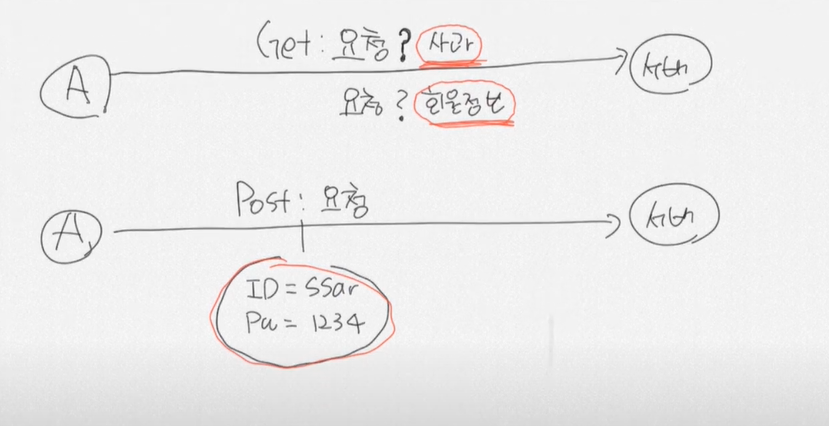 Get : 요청 ? 사과
A
서버
요청 ? 회원정보
Post : 요청
A
서버
ID = SSar
Pw = 1234